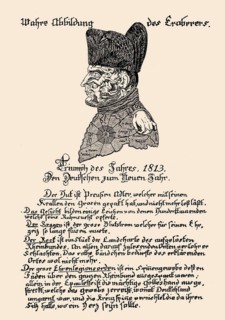 Wahre Abbildung des Eroberers.
Triumph des Jahres. 1813.
Den Deutschen zum Neuen Jahr.
Der Hut ist Preußens Adler, welcher mit seinen
Krallen den Großen gepakt hat und nicht mehr losläßt.
Das Gesicht bilden einige Leichen von denen Hunderttausenden
welche seine Ruhmsucht opferte.
Der Kragen ist der große Blutstrom welcher für seinen Ehr,
geiz so lange fließen mußte.
Der Rock ist ein Stück der Landcharte des aufgelösten
Rheinbundes. An allen darauf zu lesenden Orten verlohr er
Schlachten. Das rothe Bändchen bedurfte des erklärenden
Ortes wol nicht mehr.
Der große Ehrenlegionsorden ist ein Spinnengewebe dessen
Fäden über den ganzen Rheinbund ausgespannt waren;
allein in der Epaulette ist die mächtige Gotteshand ausge,
streckt, welche das Gewebe zerreißt, womit Deutschland
umgarnt war, und die Kreuzspinne vernichtet die da ihren
Sitz hatte, wo ein Herz seyn sollte.